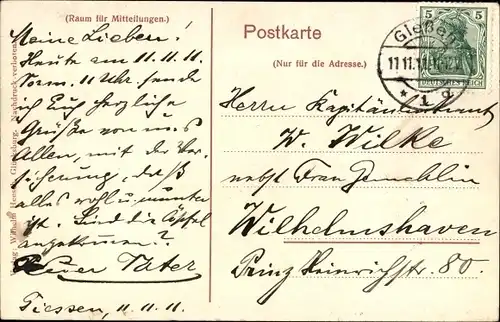 (Raum für Mitteilungen.)
Meine Lieben!
Heute am 11. 11. 11.
Vorm. 11 Uhr sende
ich Euch herzliche
Grüße von uns
Allen, mit der Ver-
sicherung, daß
alles wohl u. munter
ist. Sind die Äpfel
angekommen?
Euer Vater
Giessen, 11. 11. 11.
Postkarte
(Nur für die Adresse.)
5 5
DEUTSCHES REICH
Gießen
11.11.11
* 1
Herrn Kapitänleutnant
W. Wilke
nebst Frau Gemahlin
Wilhelmshaven
Prinz Heinrichstr. 80.
Wilhelm Nachdruck verboten